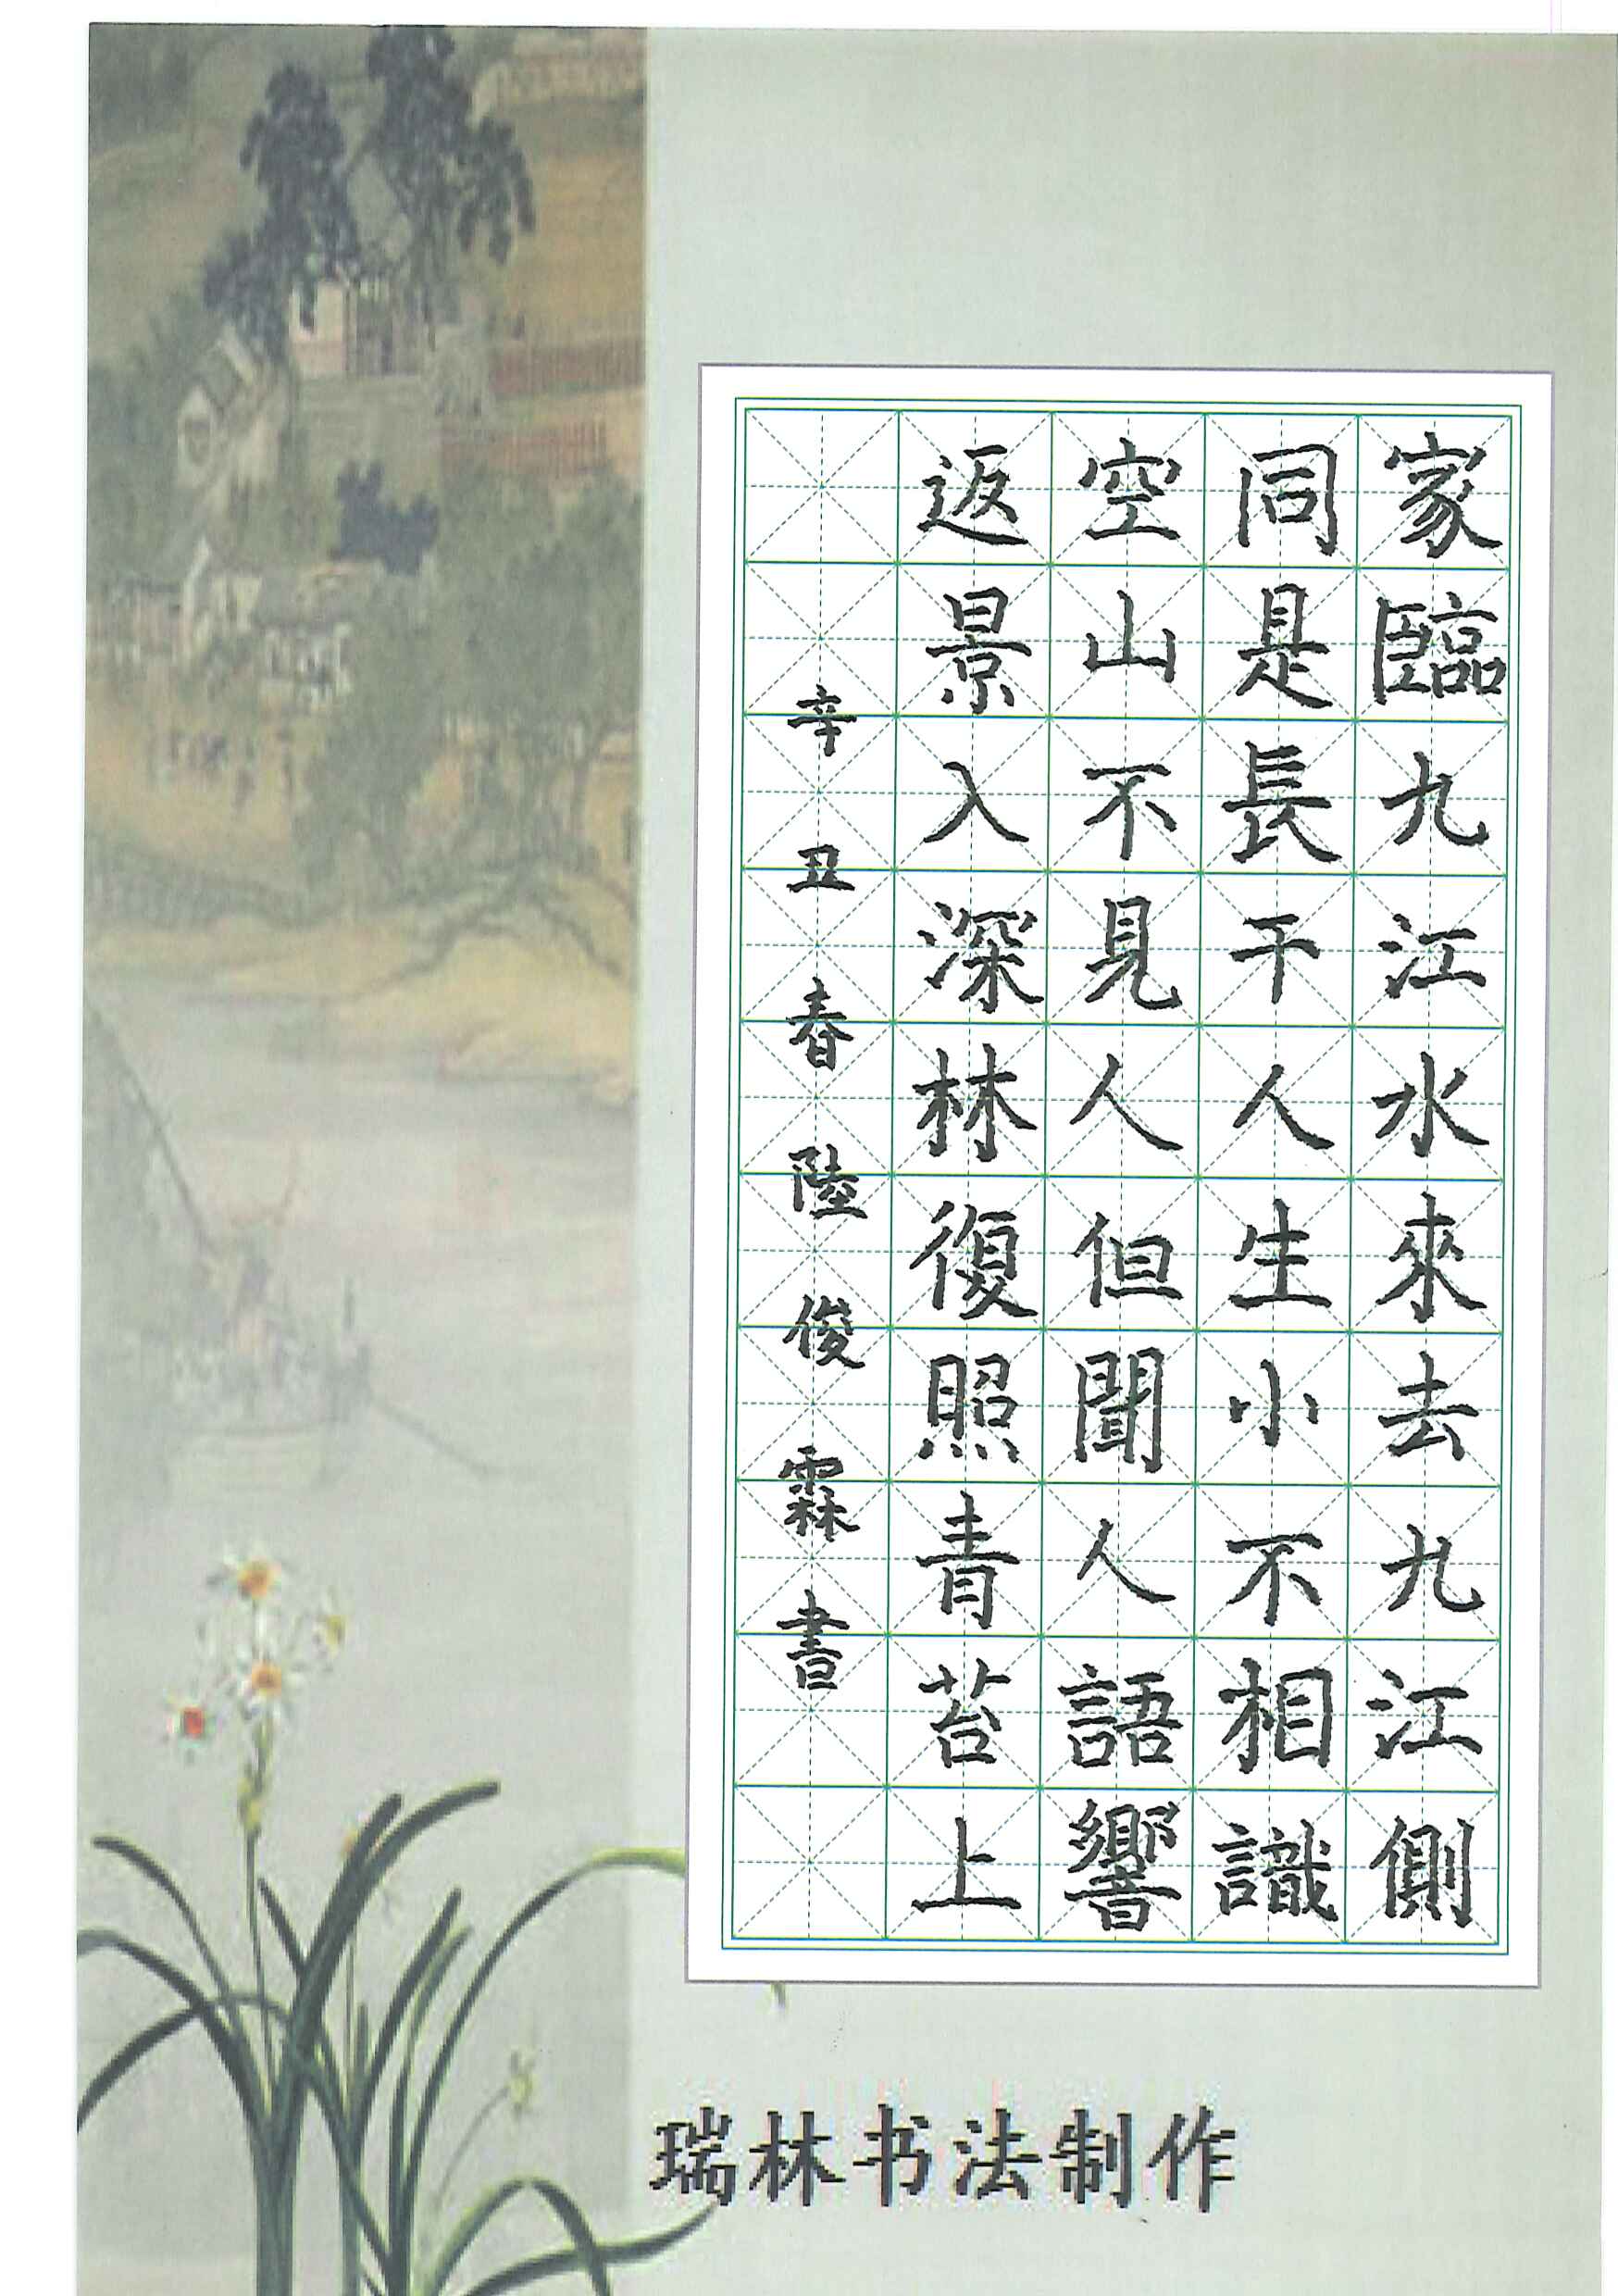 家臨九江水來去九江側
同是長干人生小不相識
空山不見人但聞人語響
返景入深林復照青苔上
辛丑春陸俊霖書
瑞林书法制作